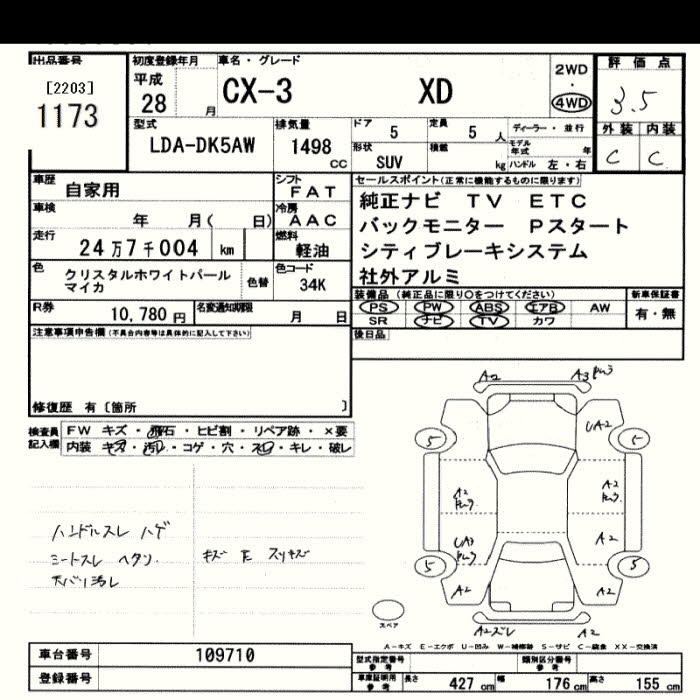 出品番号
[2203]
1173
初度登録年月
平成
28 月
車名・グレード
CX-3 XD
2WD
・
4WD
評価点
3.5
外装 内装
C C
型式
LDA-DK5AW
排気量
1498 CC
ドア 5
定員 5 人
ディーラー・並行
形状 SUV
積載 kg
モデル年式 年
ハンドル 左・右
車歴
自家用
シフト
FAT
車検
年 月( 日)
冷房
AAC
走行
24万7千004 km
燃料
軽油
色
クリスタルホワイトパール
マイカ
色替
色コード
34K
R券
10,780 円
名変通知期限
月 日
セールスポイント(正常に機能するものに限ります)
純正ナビ TV ETC
バックモニター Pスタート
シティブレーキシステム
社外アルミ
装備品 (純正品に限り○をつけてください)
PS PW ABS エアB AW
SR ナビ TV カワ
新車保証書
有・無
後日品
注意事項申告欄(不具合内容等は具体的に記入して下さい)
修復歴 有〔箇所 〕
検査員
記入欄
FW キズ・飛石・ヒビ割・リペア跡・×要
内装 キズ・汚れ・コゲ・穴・スレ・キレ・破レ
ハンドルスレ ハゲ
シートスレ ヘタリ
天バリ汚レ
キズ 有 スリキズ
A2 A3
UA2
5 5
A2 A2
UA3 A2
5 5
A2 A2
スペア
A2ズレ A2
A-キズ E-エクボ U-凹み W-補修跡 S-サビ C-腐食 XX-交換済
車台番号 109710
登録番号
型式指定番号
参考
類別区分番号
参考
車庫証明用
参考
長さ 427 cm 幅 176 cm 高さ 155 cm